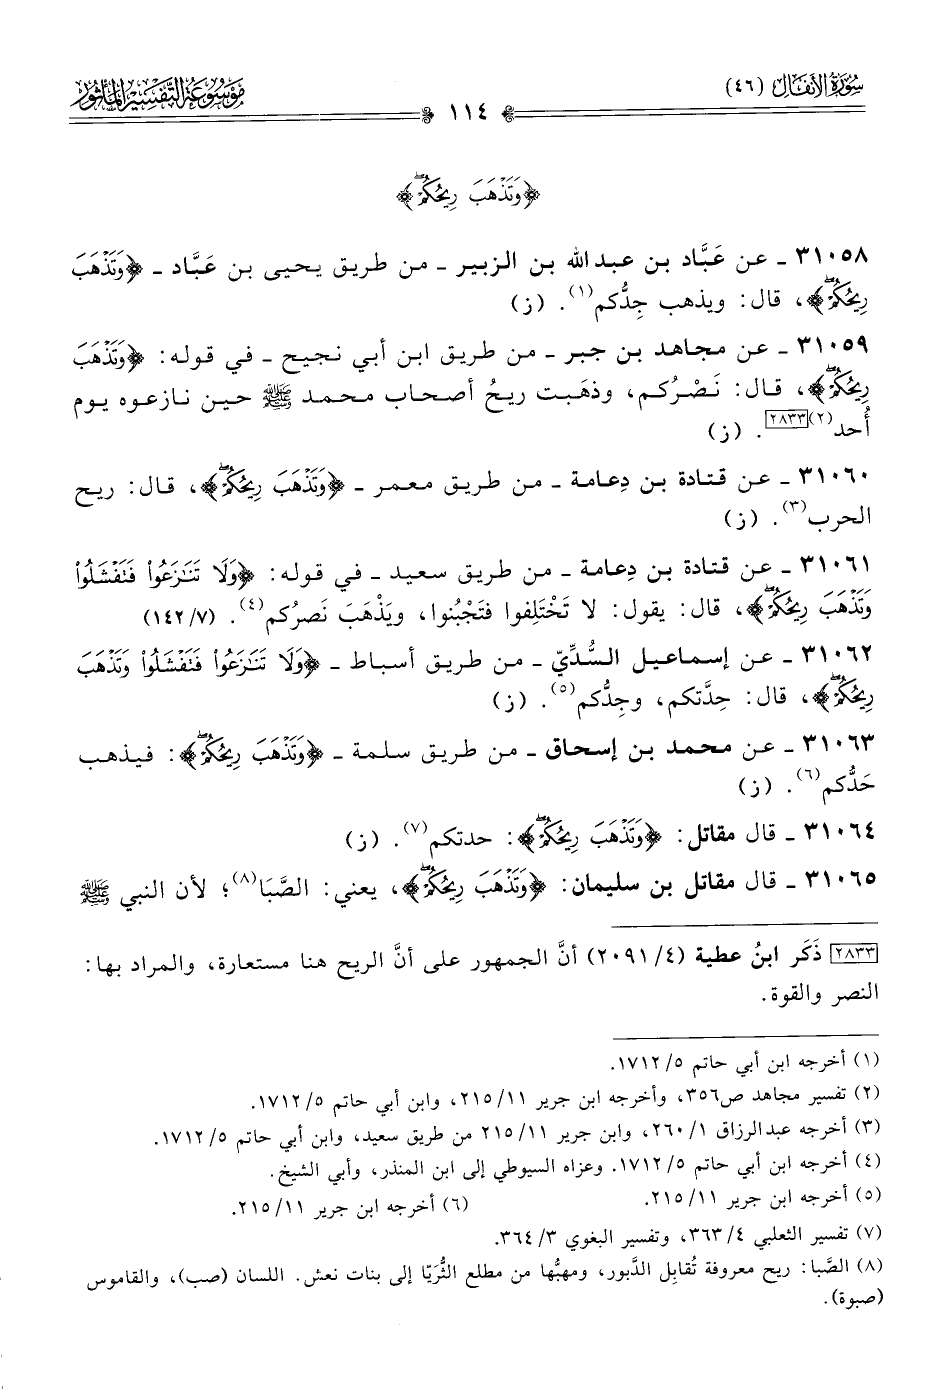 سُورَةُ الأَنْفَال (٤٦)
١١٤
مَوْسُوعَةُ التَّفْسِيرِ المَأْثُور
﴿وَتَذْهَبَ رِيحُكُمْ﴾
٣١٠٥٨ ـ عن عَبَّاد بن عبد الله بن الزبير ـ من طريق يحيى بن عَبَّاد ـ ﴿وَتَذْهَبَ
رِيحُكُمْ﴾، قال: ويذهب جِدُّكم(١). (ز)
٣١٠٥٩ ـ عن مجاهد بن جبر ـ من طريق ابن أبي نجيح ـ في قوله: ﴿وَتَذْهَبَ
رِيحُكُمْ﴾، قال: نَصْرُكم، وذهَبت ريحُ أصحاب محمد ﷺ حين نازعوه يوم
أُحد(٢)[٢٨٣٣]. (ز)
٣١٠٦٠ ـ عن قتادة بن دِعامة ـ من طريق معمر ـ ﴿وَتَذْهَبَ رِيحُكُمْ﴾، قال: ريح
الحرب(٣). (ز)
٣١٠٦١ ـ عن قتادة بن دِعامة ـ من طريق سعيد ـ في قوله: ﴿وَلَا تَنَازَعُوا فَتَفْشَلُوا
وَتَذْهَبَ رِيحُكُمْ﴾، قال: يقول: لا تَخْتَلِفوا فتَجْبُنوا، ويَذْهَبَ نَصرُكم(٤). (٧/ ١٤٢)
٣١٠٦٢ ـ عن إسماعيل السُّدِّيّ ـ من طريق أسباط ـ ﴿وَلَا تَنَازَعُوا فَتَفْشَلُوا وَتَذْهَبَ
رِيحُكُمْ﴾، قال: حِدَّتكم، وجِدُّكم(٥). (ز)
٣١٠٦٣ ـ عن محمد بن إسحاق ـ من طريق سلمة ـ ﴿وَتَذْهَبَ رِيحُكُمْ﴾: فيذهب
حَدُّكم(٦). (ز)
٣١٠٦٤ ـ قال مقاتل: ﴿وَتَذْهَبَ رِيحُكُمْ﴾: حدتكم(٧). (ز)
٣١٠٦٥ ـ قال مقاتل بن سليمان: ﴿وَتَذْهَبَ رِيحُكُمْ﴾، يعني: الصَّبَا(٨)؛ لأن النبي ﷺ
[٢٨٣٣] ذَكَر ابنُ عطية (٤/ ٢٠٩١) أنَّ الجمهور على أنَّ الريح هنا مستعارة، والمراد بها:
النصر والقوة.
(١) أخرجه ابن أبي حاتم ٥/ ١٧١٢.
(٢) تفسير مجاهد ص٣٥٦، وأخرجه ابن جرير ١١/ ٢١٥، وابن أبي حاتم ٥/ ١٧١٢.
(٣) أخرجه عبد الرزاق ١/ ٢٦٠، وابن جرير ١١/ ٢١٥ من طريق سعيد، وابن أبي حاتم ٥/ ١٧١٢.
(٤) أخرجه ابن أبي حاتم ٥/ ١٧١٢. وعزاه السيوطي إلى ابن المنذر، وأبي الشيخ.
(٥) أخرجه ابن جرير ١١/ ٢١٥. (٦) أخرجه ابن جرير ١١/ ٢١٥.
(٧) تفسير الثعلبي ٤/ ٣٦٣، وتفسير البغوي ٣/ ٣٦٤.
(٨) الصَّبا: ريح معروفة تُقابِل الدَّبور، ومهبُّها من مطلع الثُّرَيّا إلى بنات نعش. اللسان (صب)، والقاموس
(صبوة).